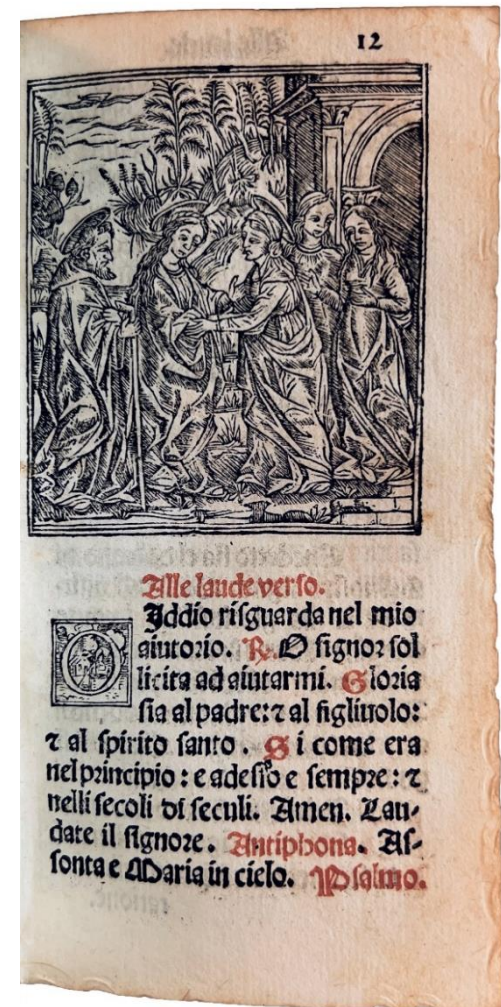 12
Alle laude verso.
O Iddio risguarda nel mio
aiutorio. ℟. O signor sol
licita ad aiutarmi. Gloria
sia al padre: ⁊ al figliuolo:
⁊ al spirito santo. Si come era
nel principio: e adesso e sempre: ⁊
nelli secoli di seculi. Amen. Lau-
date il signore. Antiphona. As-
sonta e Maria in cielo. Psalmo.